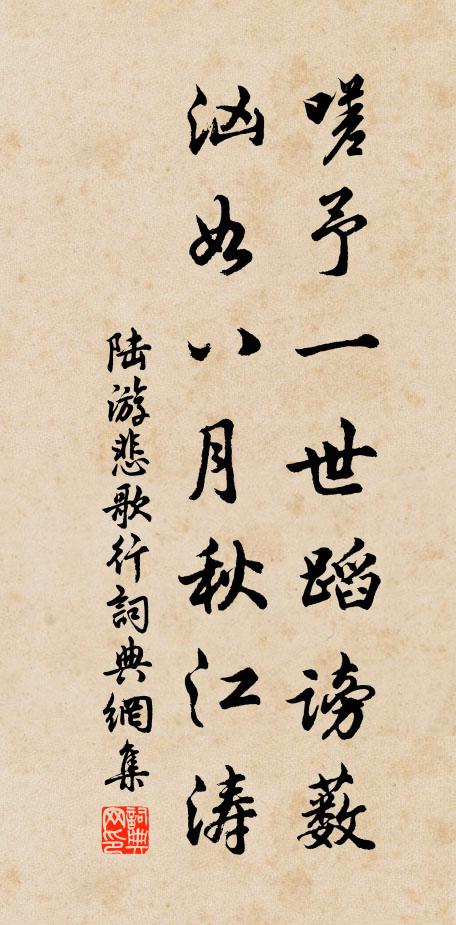 嗟予一世蹈謗薮
汹如八月秋江涛
陆游悲歌行詞典網集
詞典网印